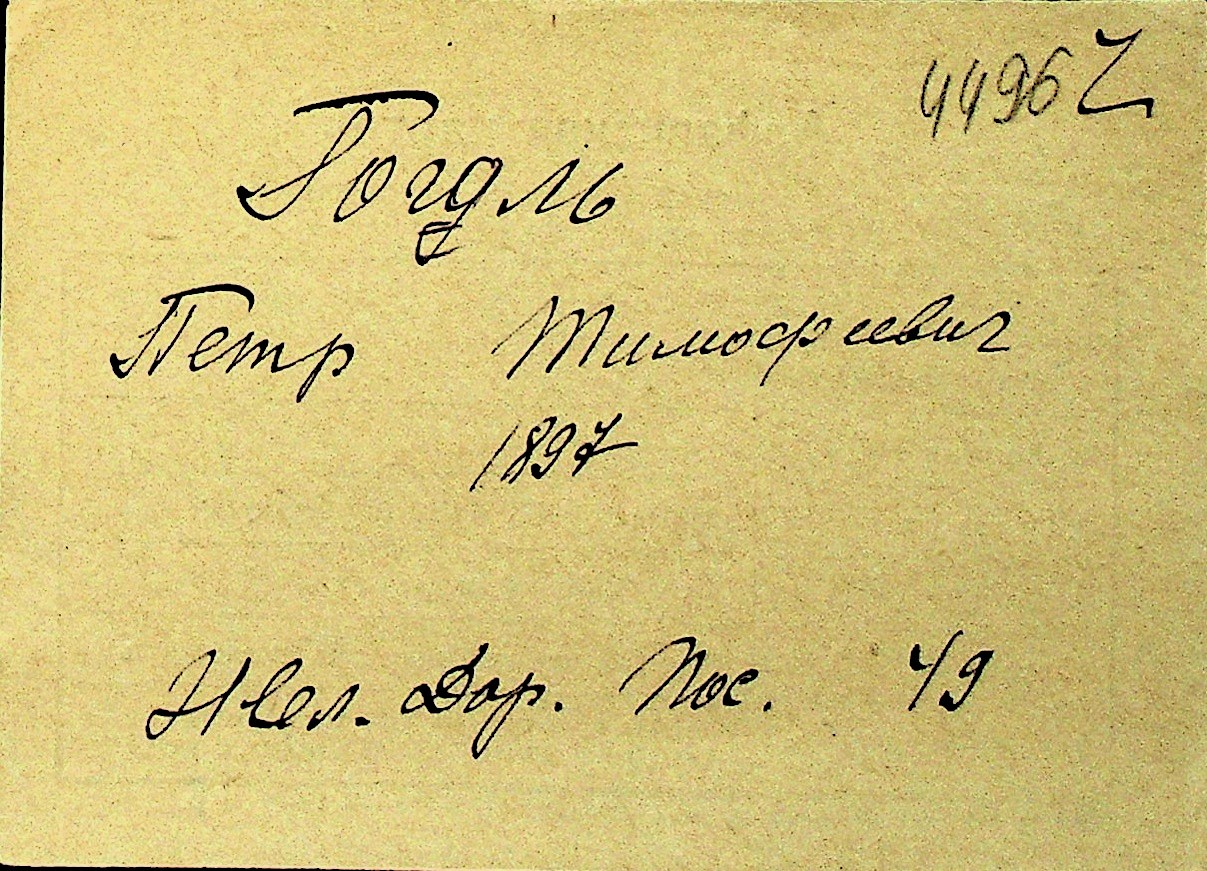 4496 2
Гогдль
Петр Тимофеевич
1897
Жел. Дор. Пос. 49